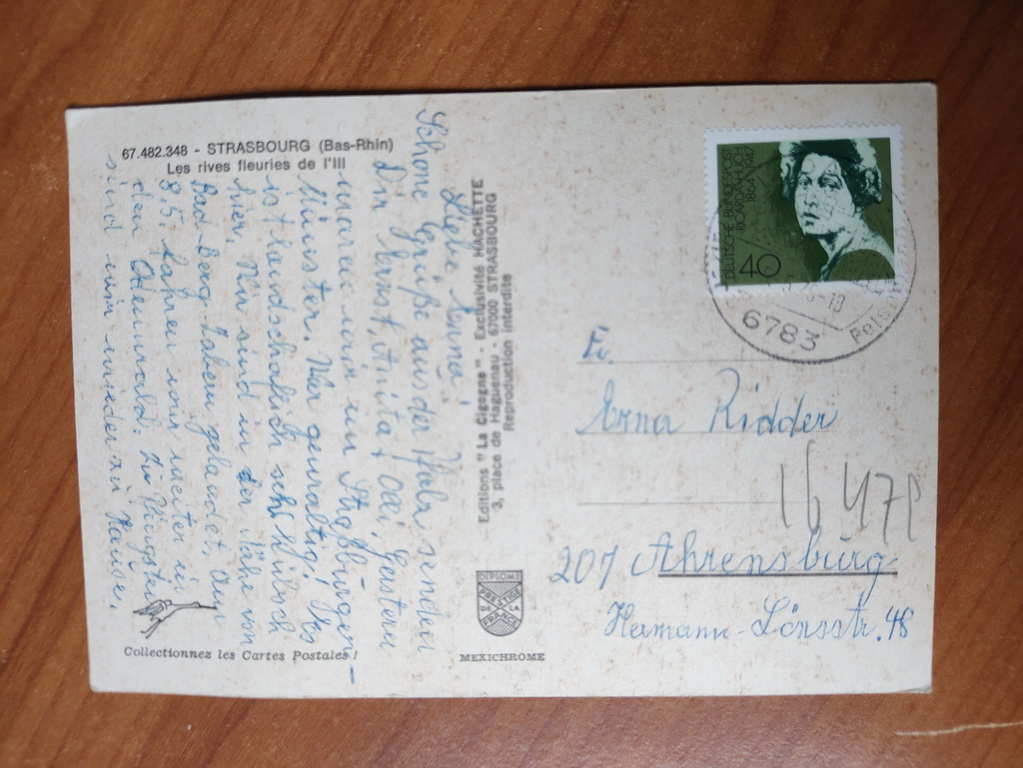 67.482.348 - STRASBOURG (Bas-Rhin)
Les rives fleuries de l'Ill
Liebe Erna!
Schöne Grüße aus der Pfalz senden
Dir Ernst, Anita + Olli, Gestern
waren wir im Straßburger-
Münster. War gewaltig! Es
ist landschaftlich sehr hübsch
hier. Wir sind in der Nähe von
Bad Berg-Zabern gelandet. Am
8.5. fahren wir weiter in
den Odenwald. Zu Pfingsten
sind wir wieder zu Hause.
Collectionnez les Cartes Postales !
Editions "La Cigogne" - Exclusivité HACHETTE
3, place de Haguenau - 67000 STRASBOURG
Reproduction interdite
DIPLOME
PRESTIGE
DE LA
FRANCE
MEXICHROME
DEUTSCHE BUNDESPOST
RICARDA HUCH
1864-1947
40
6783
Fr.
Erna Ridder
16 471
207 Ahrensburg
Hermann-Lönsstr. 48